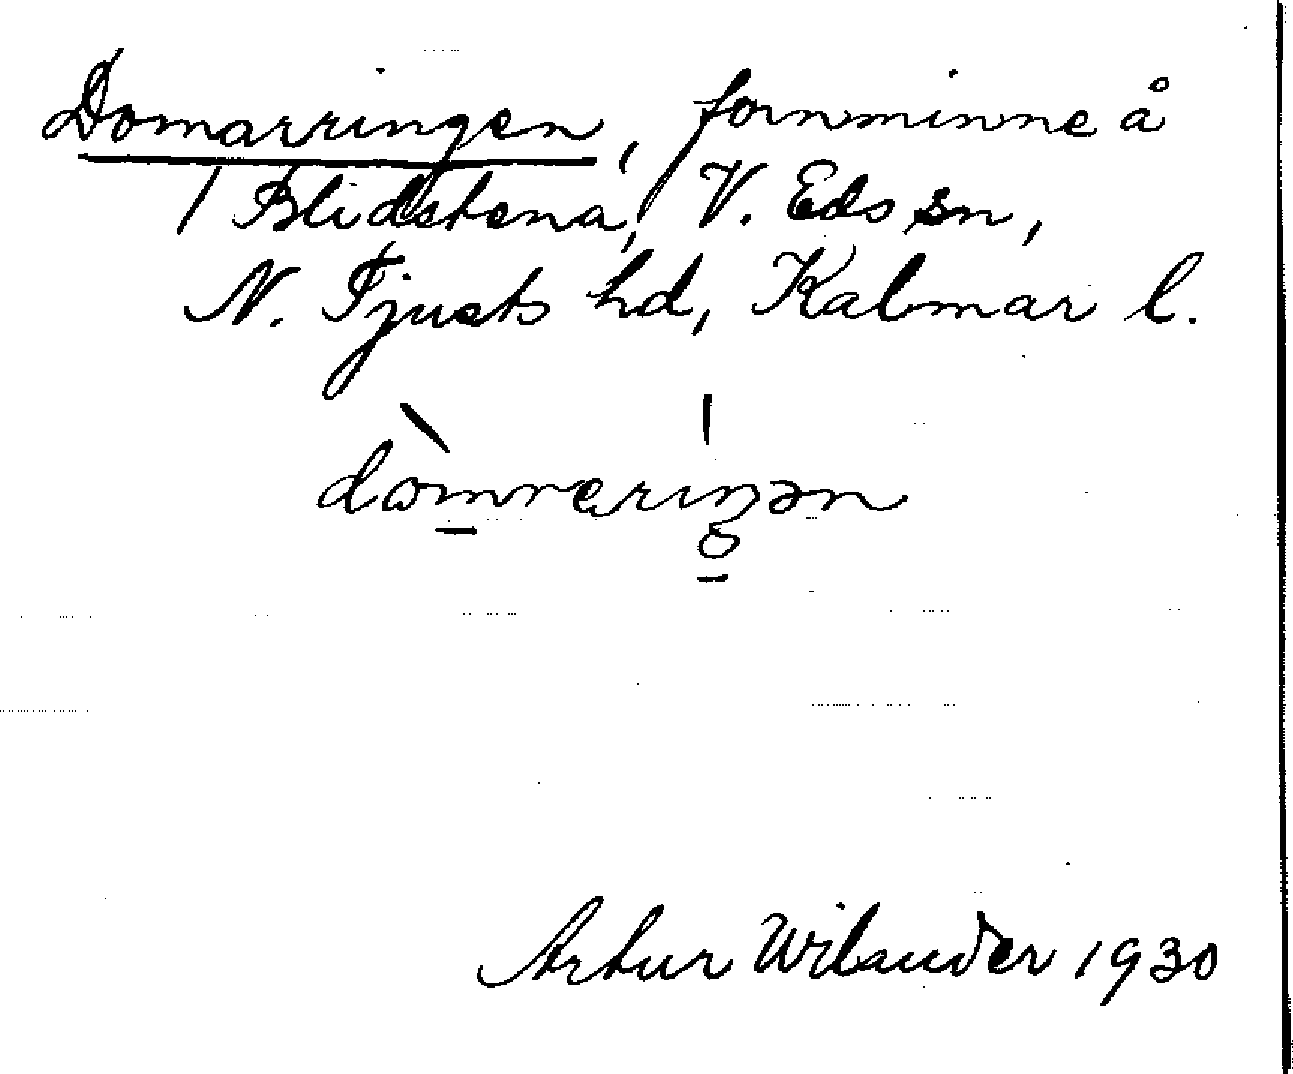 Domarringen, fornminne å
Blidstena, V. Eds sn,
N. Tjusts hd, Kalmar l.
Artur Wilander 1930